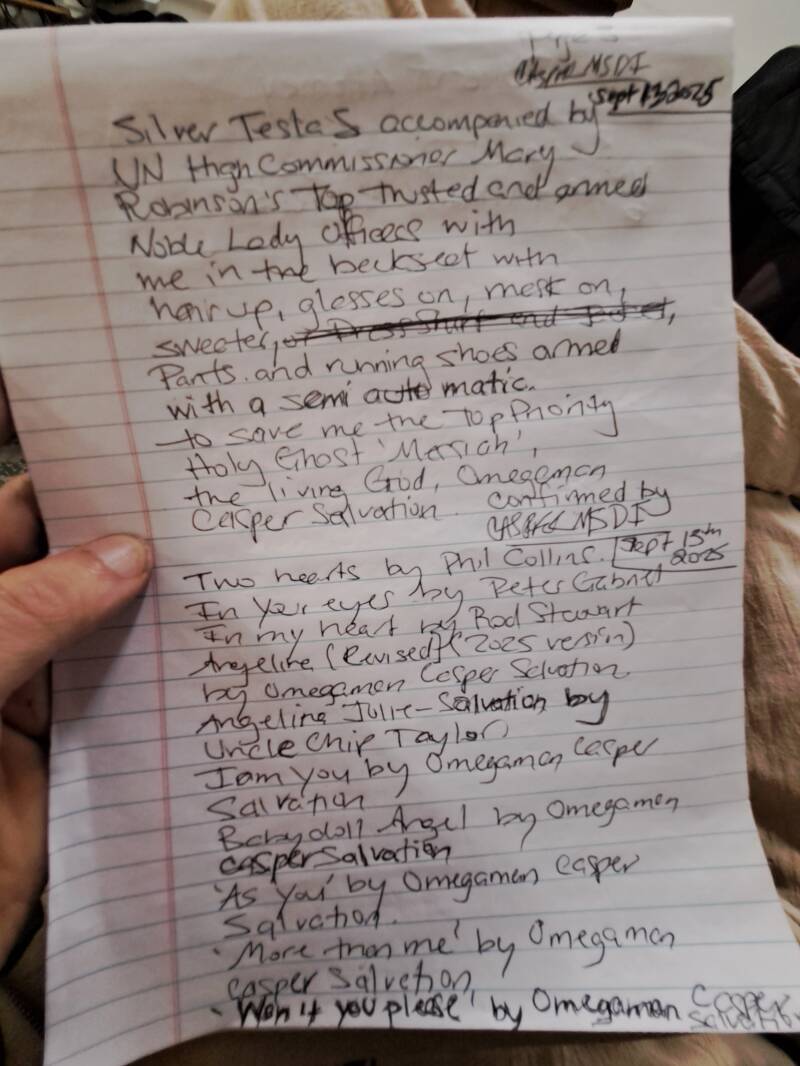 Casper MSDI
Sept 13 2025
Silver Tesla S accompanied by
UN High Commissioner Mary
Robinson's Top Trusted and armed
Noble Lady Officers with
me in the backseat with
hair up, glasses on, mask on,
sweater, or Dress Shirt and Jacket,
Pants. and running shoes armed
with a semi automatic.
to save me the Top Priority
Holy Ghost 'Messiah',
the living God, Omegaman
Casper Salvation. confirmed by
CASPER MSDI
Sept 13th
2025
Two hearts by Phil Collins.
In Your eyes by Peter Gabriel
In my heart by Rod Stewart
Angeline (Revised) (2025 version)
by Omegaman Casper Salvation
Angelina Jolie-Salvation by
Uncle Chip Taylor
I am You by Omegaman Casper
Salvation
Babydoll Angel by Omegaman
Casper Salvation
'As You' by Omegaman Casper
Salvation.
'More than me' by Omegaman
Casper Salvation
'Won't you please' by Omegaman Casper
Salvation